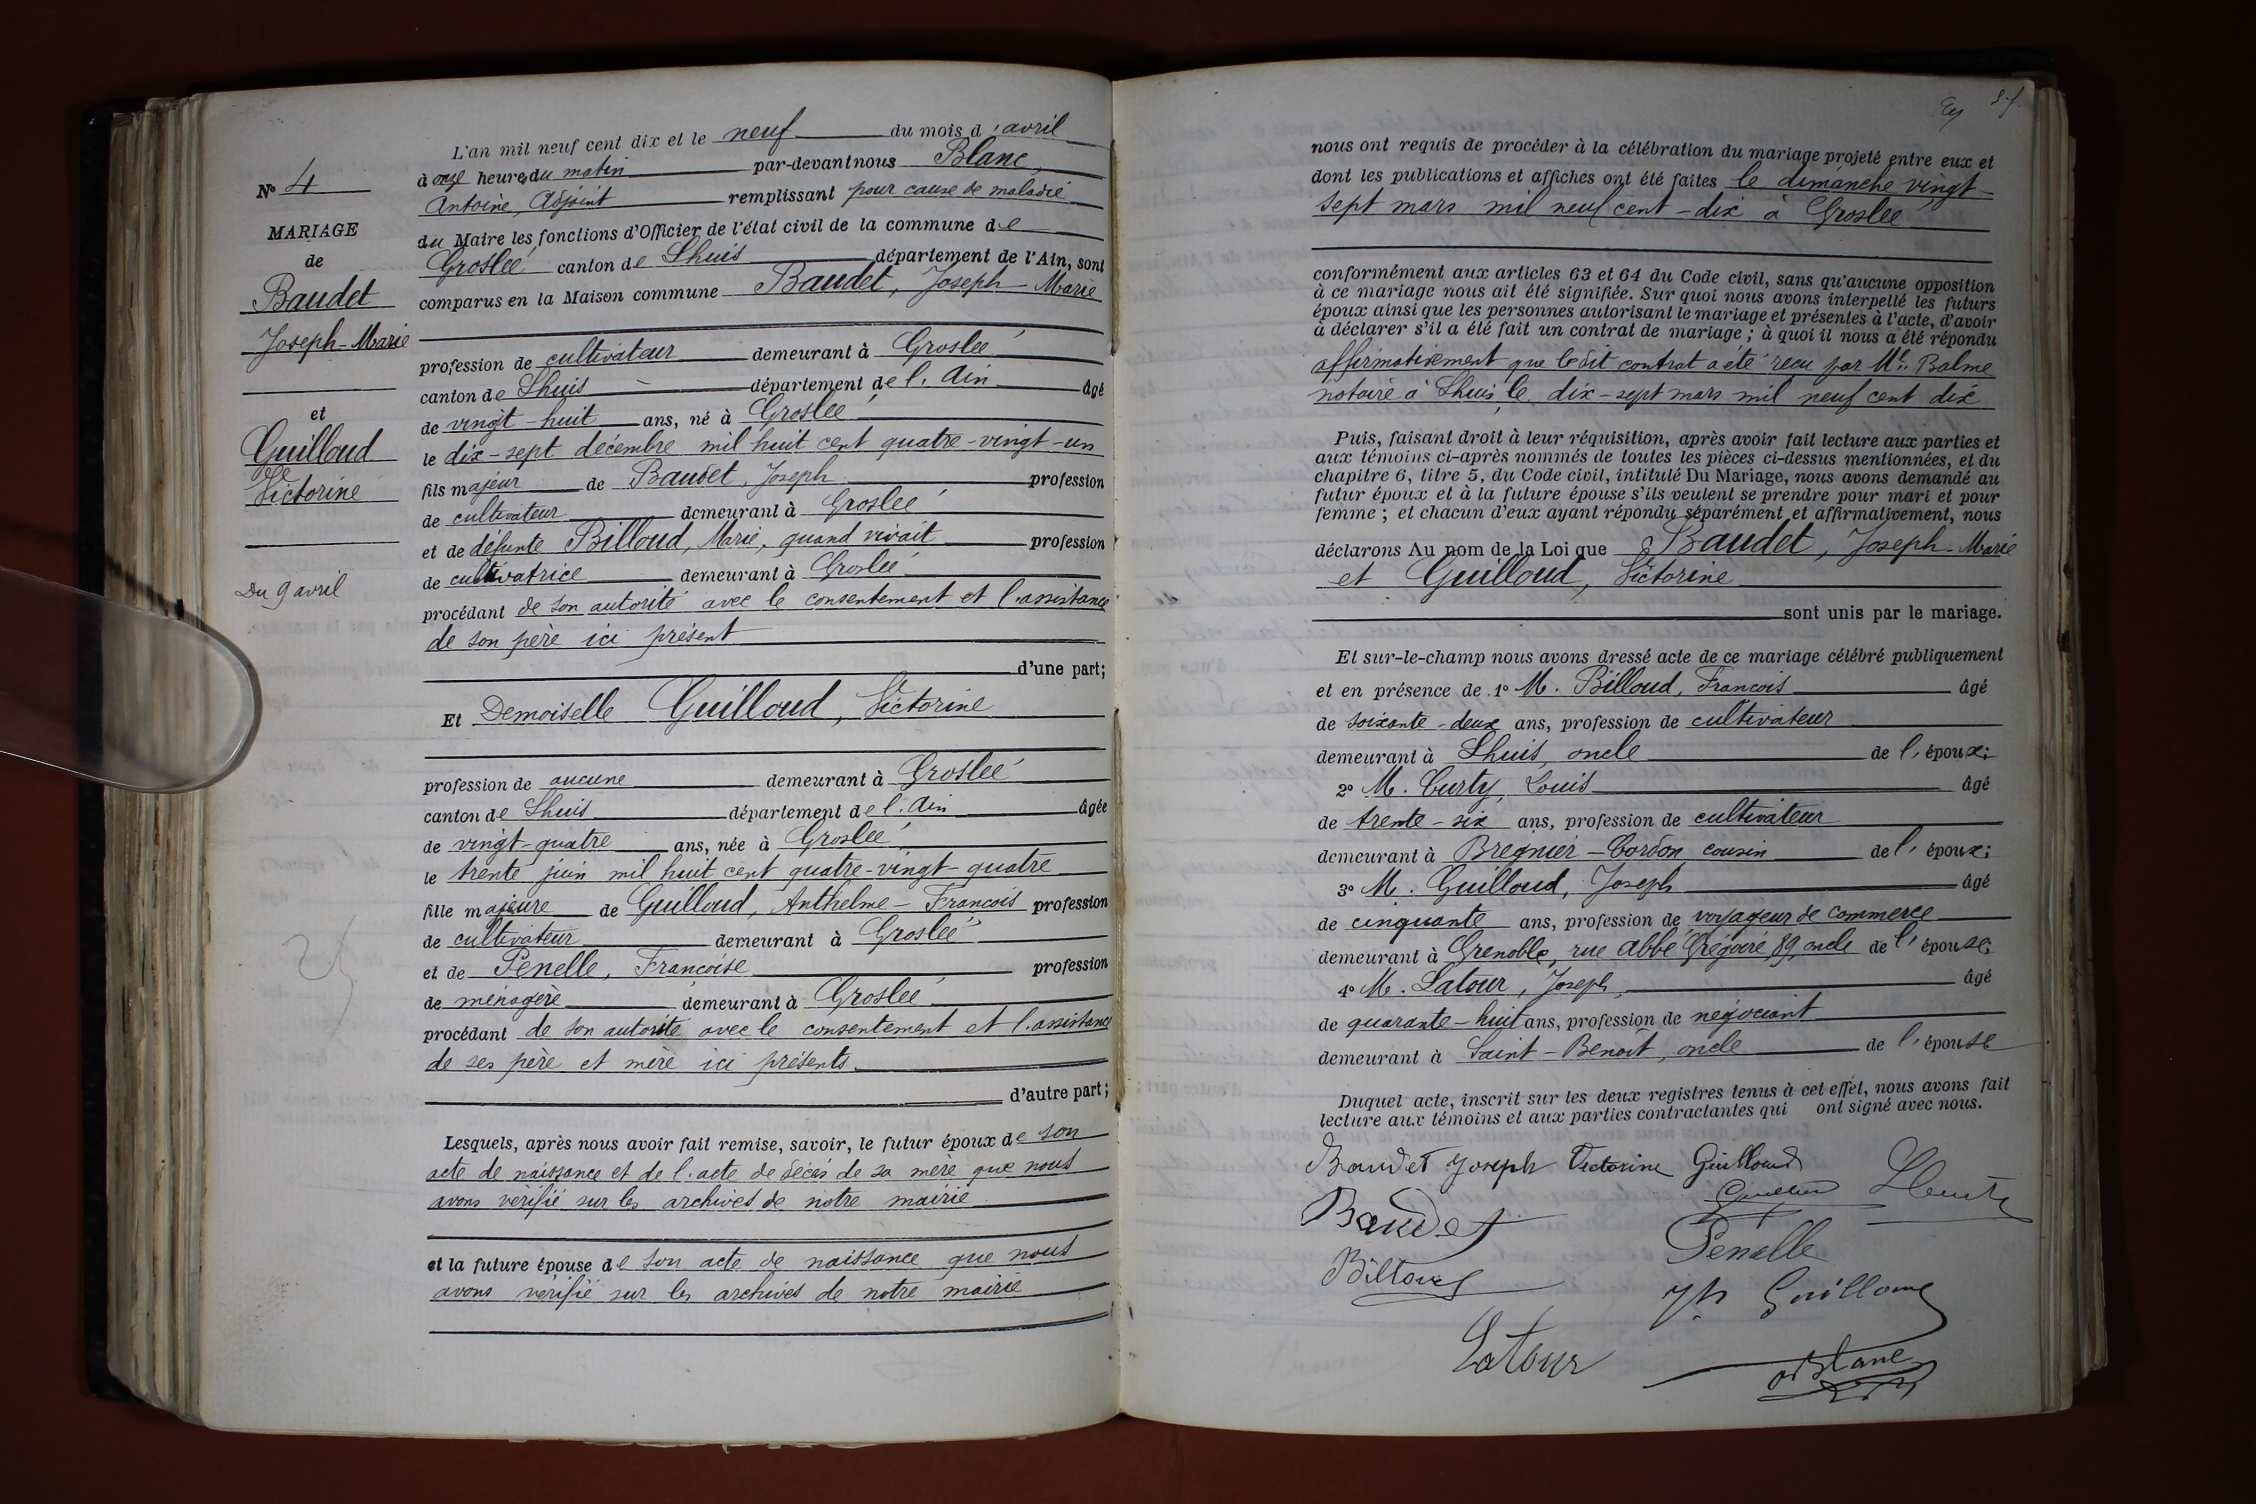 N° 4
MARIAGE
de
Baudet
Joseph-Marie
et
Guilloud
Victorine
Du 9 avril
L'an mil neuf cent dix et le neuf du mois d'avril
à onze heures du matin par-devant nous Blanc,
Antoine, Adjoint remplissant pour cause de maladie
du Maire les fonctions d'Officier de l'état civil de la commune de
Groslée canton de Lhuis département de l'Ain, sont
comparus en la Maison commune Baudet, Joseph-Marie
profession de cultivateur demeurant à Groslée
canton de Lhuis département de l'Ain âgé
de vingt-huit ans, né à Groslée
le dix-sept décembre mil huit cent quatre-vingt-un
fils majeur de Baudet, Joseph profession
de cultivateur demeurant à Groslée
et de défunte Billoud, Marie, quand vivait profession
de cultivatrice demeurant à Groslée
procédant de son autorité avec le consentement et l'assistance
de son père ici présent
d'une part;
Et Demoiselle Guilloud, Victorine
profession de aucune demeurant à Groslée
canton de Lhuis département de l'Ain âgée
de vingt-quatre ans, née à Groslée
le trente juin mil huit cent quatre-vingt-quatre
fille majeure de Guilloud, Anthelme-François profession
de cultivateur demeurant à Groslée
et de Penelle, Françoise profession
de ménagère demeurant à Groslée
procédant de son autorité avec le consentement et l'assistance
de ses père et mère ici présents
d'autre part;
Lesquels, après nous avoir fait remise, savoir, le futur époux de son
acte de naissance et de l'acte de décès de sa mère que nous
avons vérifié sur les archives de notre mairie
et la future épouse de son acte de naissance que nous
avons vérifié sur les archives de notre mairie
nous ont requis de procéder à la célébration du mariage projeté entre eux et
dont les publications et affiches ont été faites le dimanche vingt
sept mars mil neuf cent-dix à Groslée
conformément aux articles 63 et 64 du Code civil, sans qu'aucune opposition
à ce mariage nous ait été signifiée. Sur quoi nous avons interpellé les futurs
époux ainsi que les personnes autorisant le mariage et présentes à l'acte, d'avoir
à déclarer s'il a été fait un contrat de mariage; à quoi il nous a été répondu
affirmativement que ledit contrat a été reçu par Me Balme
notaire à Lhuis le dix-sept mars mil neuf cent dix
Puis, faisant droit à leur réquisition, après avoir fait lecture aux parties et
aux témoins ci-après nommés de toutes les pièces ci-dessus mentionnées, et du
chapitre 6, titre 5, du Code civil, intitulé Du Mariage, nous avons demandé au
futur époux et à la future épouse s'ils veulent se prendre pour mari et pour
femme; et chacun d'eux ayant répondu séparément et affirmativement, nous
déclarons Au nom de la Loi que Baudet, Joseph-Marie
et Guilloud, Victorine
sont unis par le mariage.
Et sur-le-champ nous avons dressé acte de ce mariage célébré publiquement
et en présence de 1° M. Billoud, François âgé
de soixante-deux ans, profession de cultivateur
demeurant à Lhuis, oncle de l'époux;
2° M. Curty, Louis âgé
de trente-six ans, profession de cultivateur
demeurant à Bregnier-Cordon, cousin de l'époux;
3° M. Guilloud, Joseph âgé
de cinquante ans, profession de voyageur de commerce
demeurant à Grenoble, rue Abbé Grégoire, 89, oncle de l'épouse;
4° M. Latour, Joseph, âgé
de quarante-huit ans, profession de négociant
demeurant à Saint-Benoît, oncle de l'épouse
Duquel acte, inscrit sur les deux registres tenus à cet effet, nous avons fait
lecture aux témoins et aux parties contractantes qui ont signé avec nous.
Baudet Joseph Victorine Guilloud
Baudet
Penelle
Billoud
Jh Guilloud
Latour
A Blanc